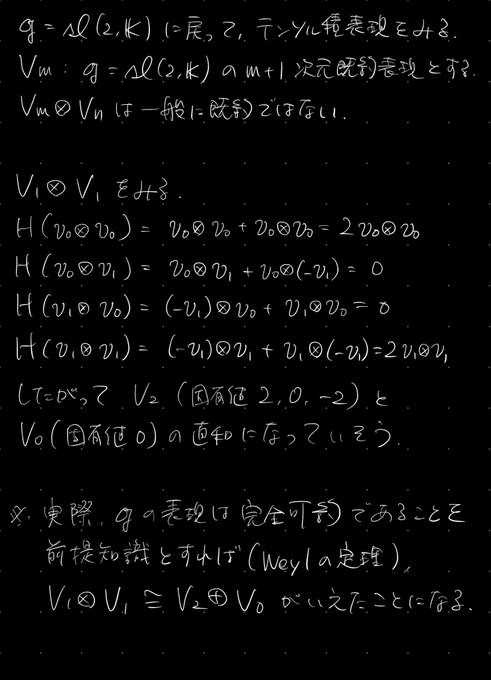 g = sl(2,K) に戻って, テンソル積表現をみる.
Vm : g = sl(2,K) の m+1 次元既約表現とする.
Vm⊗Vn は一般に既約ではない.
V₁⊗V₁ をみる.
H(v₀⊗v₀) = v₀⊗v₀ + v₀⊗v₀ = 2v₀⊗v₀
H(v₀⊗v₁) = v₀⊗v₁ + v₀⊗(-v₁) = 0
H(v₁⊗v₀) = (-v₁)⊗v₀ + v₁⊗v₀ = 0
H(v₁⊗v₁) = (-v₁)⊗v₁ + v₁⊗(-v₁) = 2v₁⊗v₁
したがって V₂ (固有値 2, 0, -2) と
V₀ (固有値 0) の直和になっていそう.
※ 実際, g の表現は完全可約であることを
前提知識とすれば (Weylの定理),
V₁⊗V₁ ≅ V₂⊕V₀ がいえたことになる.